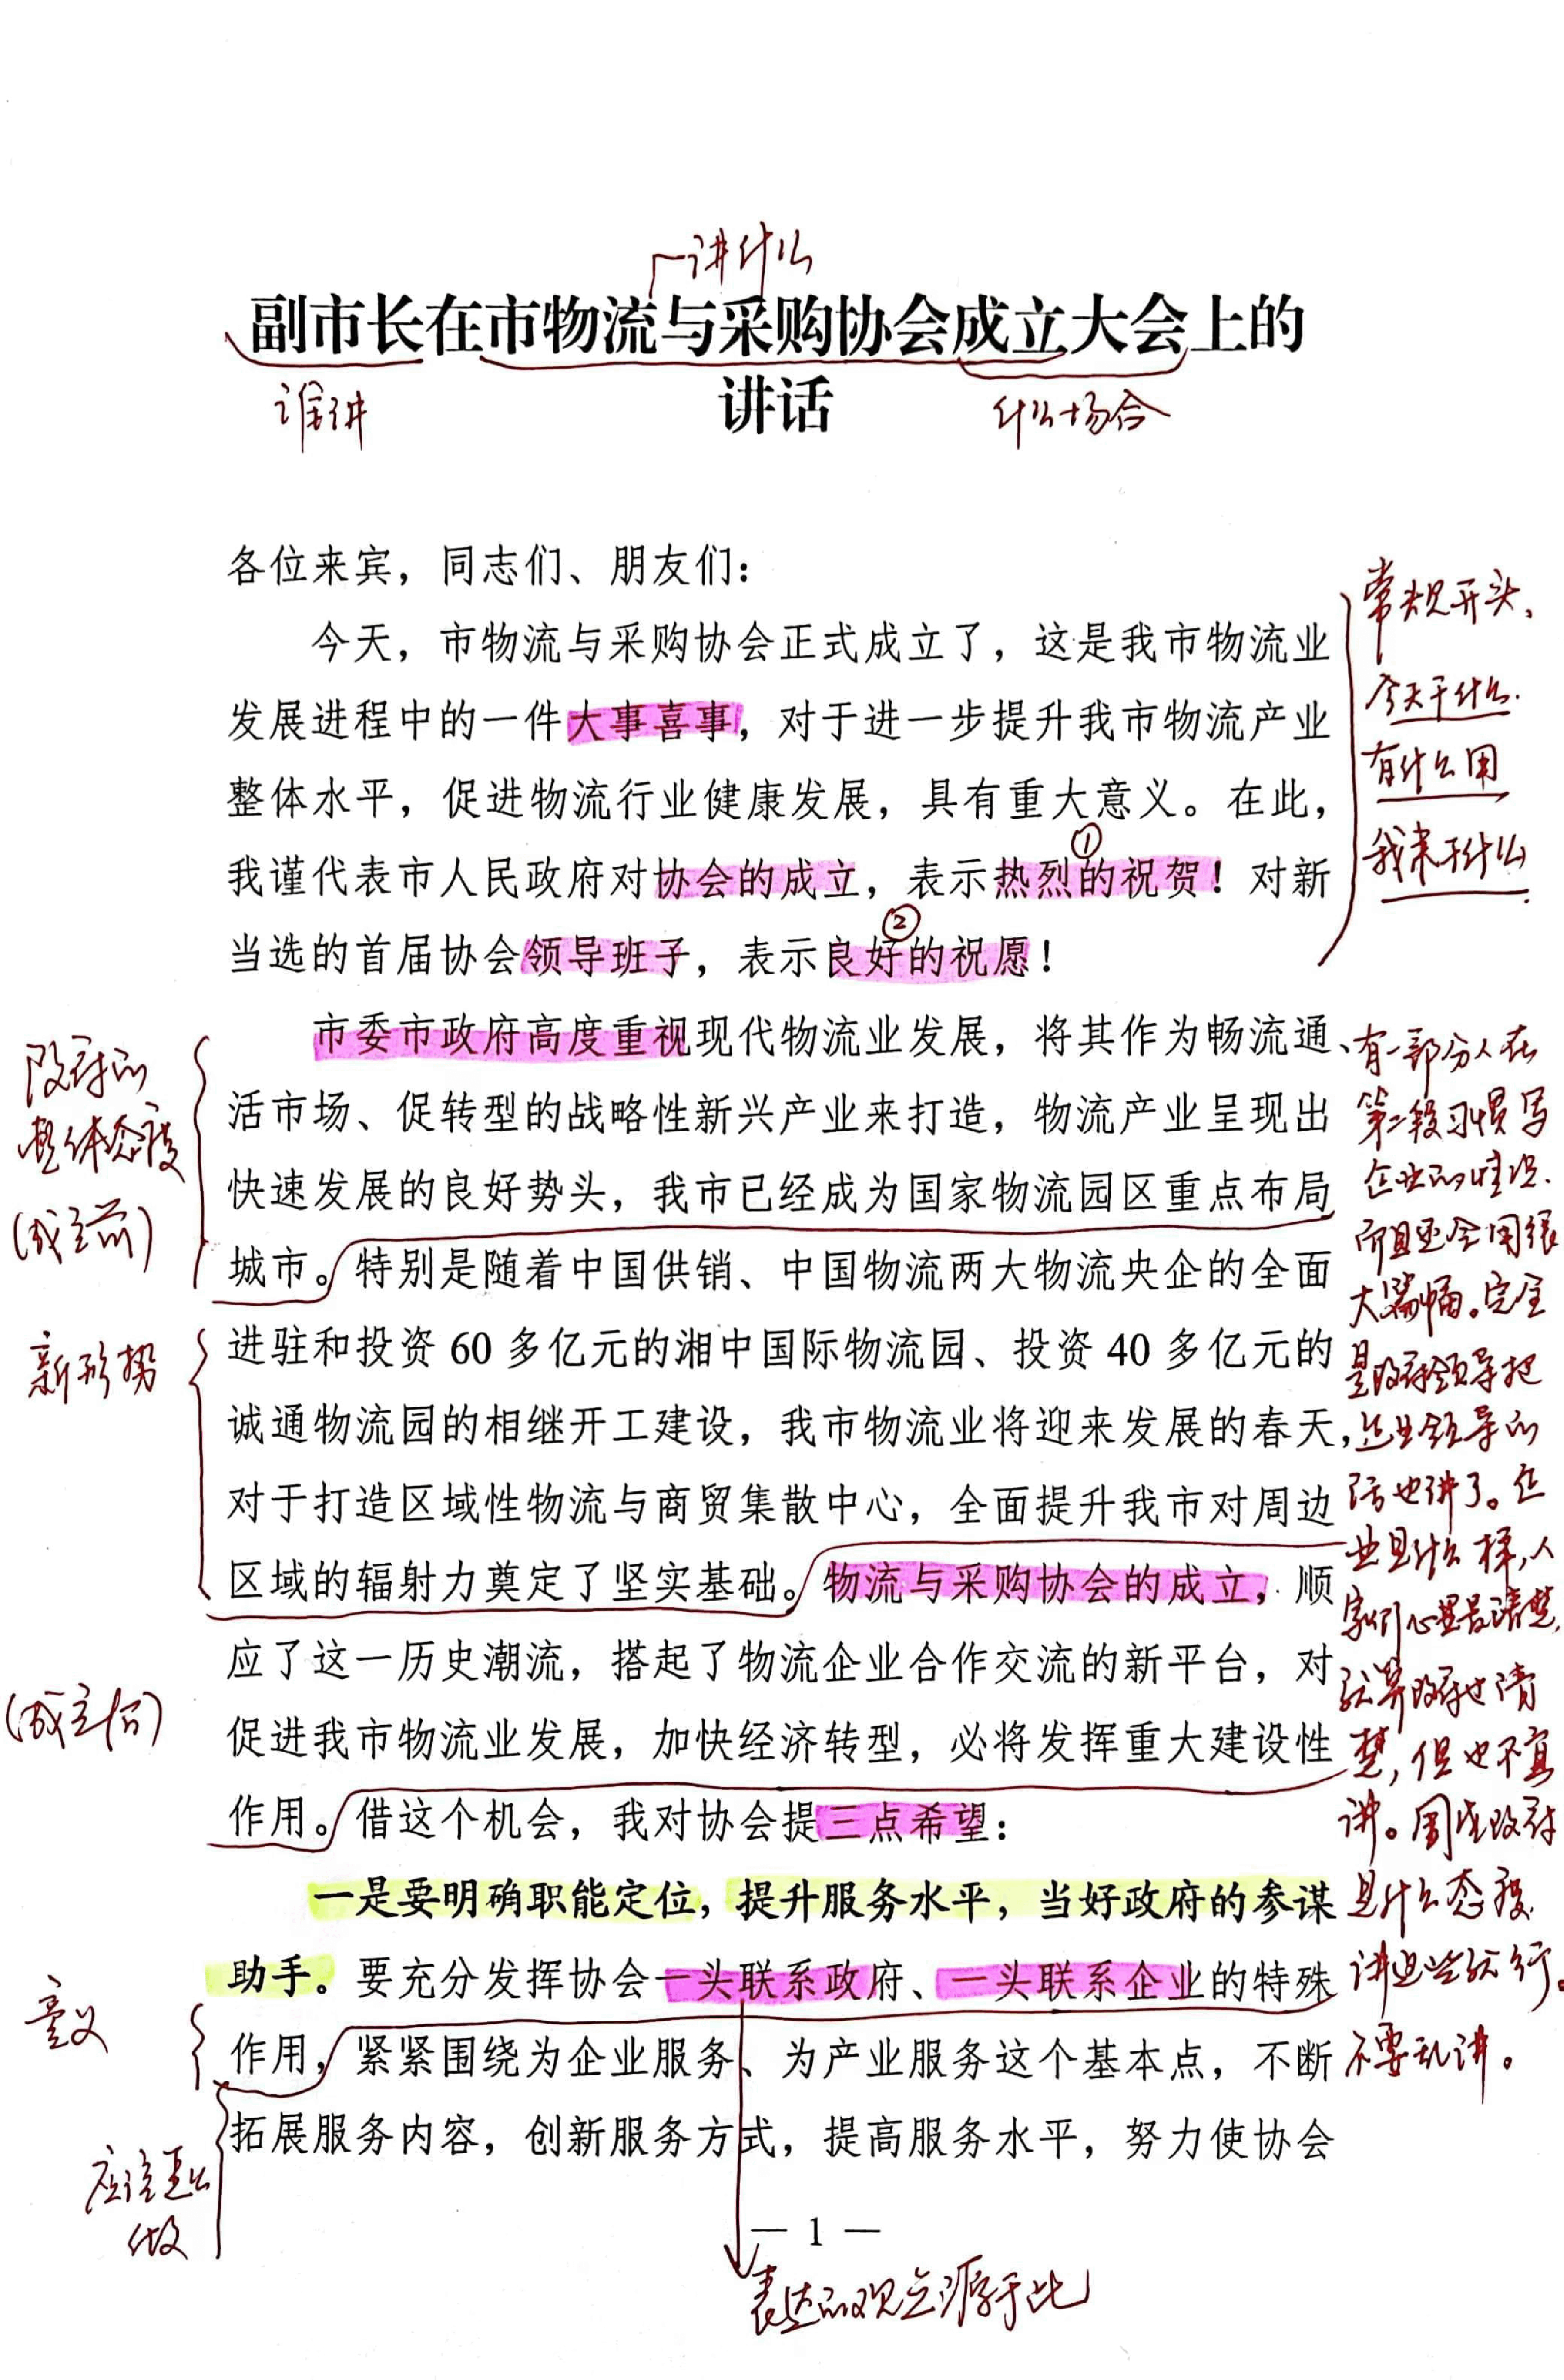 讲什么
副市长在市物流与采购协会成立大会上的
讲话
谁讲
什么场合
各位来宾，同志们、朋友们：
今天，市物流与采购协会正式成立了，这是我市物流业
发展进程中的一件大事喜事，对于进一步提升我市物流产业
整体水平，促进物流行业健康发展，具有重大意义。在此，
①
我谨代表市人民政府对协会的成立，表示热烈的祝贺！对新
②
当选的首届协会领导班子，表示良好的祝愿！
常规开头，
今天干什么.
有什么用
我来干什么
市委市政府高度重视现代物流业发展，将其作为畅流通、
活市场、促转型的战略性新兴产业来打造，物流产业呈现出
快速发展的良好势头，我市已经成为国家物流园区重点布局
城市。特别是随着中国供销、中国物流两大物流央企的全面
进驻和投资 60 多亿元的湘中国际物流园、投资 40 多亿元的
诚通物流园的相继开工建设，我市物流业将迎来发展的春天，
对于打造区域性物流与商贸集散中心，全面提升我市对周边
区域的辐射力奠定了坚实基础。物流与采购协会的成立，顺
应了这一历史潮流，搭起了物流企业合作交流的新平台，对
促进我市物流业发展，加快经济转型，必将发挥重大建设性
作用。借这个机会，我对协会提三点希望：
一是要明确职能定位，提升服务水平，当好政府的参谋
助手。要充分发挥协会一头联系政府、一头联系企业的特殊
作用，紧紧围绕为企业服务、为产业服务这个基本点，不断
拓展服务内容，创新服务方式，提高服务水平，努力使协会
政府的
整体态度
(成立前)
新形势
(成立后)
意义
应该怎么
做
有一部分人在
第二段习惯写
企业的情况.
而且还会用很
大篇幅。完全
是政府领导把
企业领导的
话也讲了。企
业是什么样，人
家们心里最清楚，
就算政府也清
楚，但也不宜
讲。围绕政府
是什么态度
讲这些就行。
不要乱讲。
— 1 —
表达的观点源于此